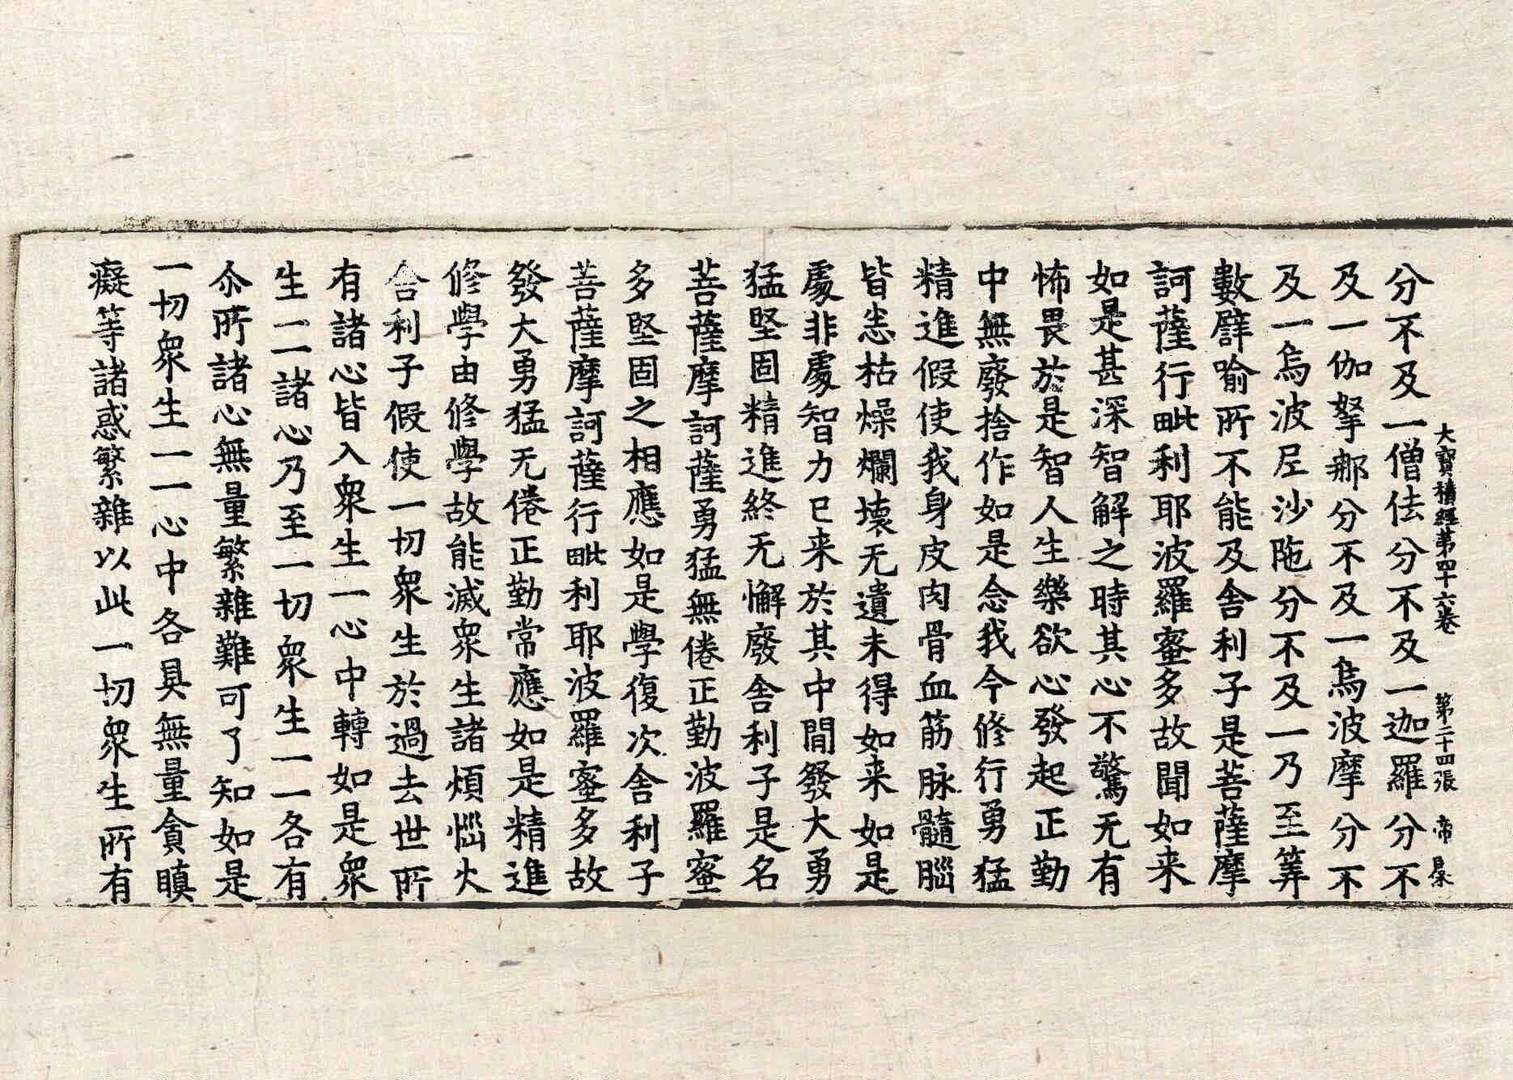 大寶積經第四十六卷 第二十四張 帝
分不及一僧佉分不及一迦羅分不
及一伽拏那分不及一烏波摩分不
及一烏波尼沙陁分不及一乃至筭
數譬喻所不能及舍利子是菩薩摩
訶薩行毗利耶波羅蜜多故聞如来
如是甚深智解之時其心不驚无有
怖畏於是智人生樂欲心發起正勤
中無廢捨作如是念我今修行勇猛
精進假使我身皮肉骨血筋脉髓腦
皆悉枯燥爛壞无遺未得如来如是
處非處智力已来於其中閒發大勇
猛堅固精進終无懈廢舍利子是名
菩薩摩訶薩勇猛無倦正勤波羅蜜
多堅固之相應如是學復次舍利子
菩薩摩訶薩行毗利耶波羅蜜多故
發大勇猛无倦正勤常應如是精進
修學由修學故能滅衆生諸煩惱火
舍利子假使一切衆生於過去世所
有諸心皆入衆生一心中轉如是衆
生一一諸心乃至一切衆生一一各有
尒所諸心無量繁雜難可了知如是
一切衆生一一心中各具無量貪瞋
癡等諸惑繁雜以此一切衆生所有